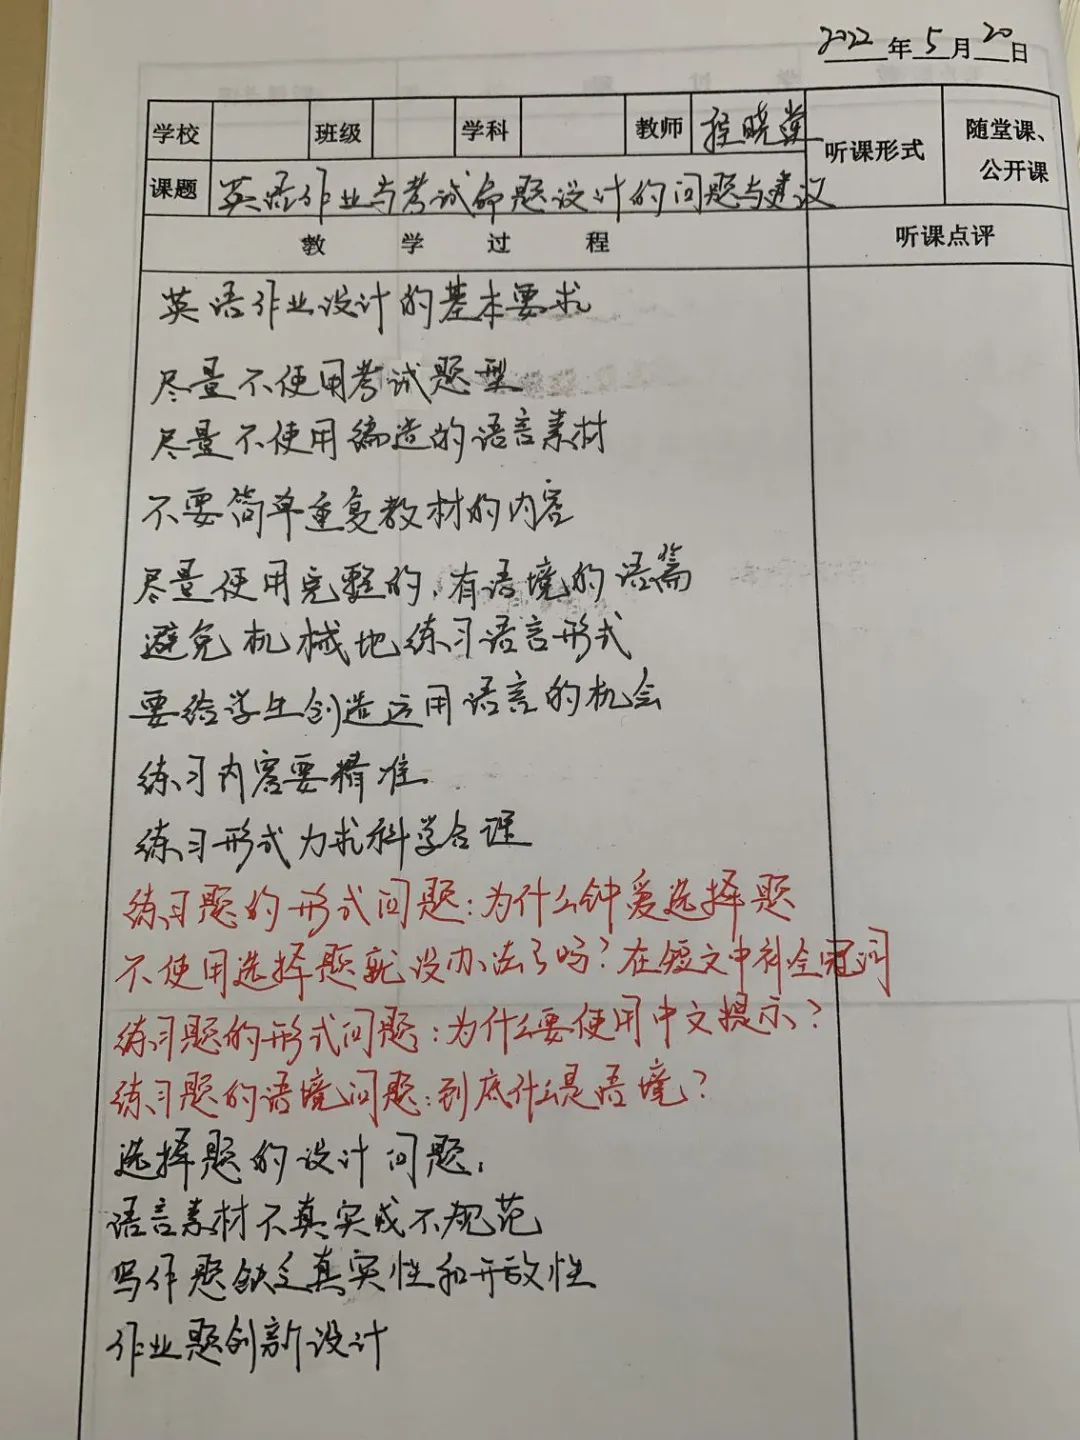 2022年5月20日
学校 班级 学科 教师 程晓堂 听课形式 随堂课、公开课
课题 英语作业与考试命题设计的问题与建议
教学过程 听课点评
英语作业设计的基本要求
尽量不使用考试题型
尽量不使用编造的语言素材
不要简单重复教材的内容
尽量使用完整的,有语境的语篇
避免机械地练习语言形式
要给学生创造运用语言的机会
练习内容要精准
练习形式力求科学合理
练习题的形式问题:为什么钟爱选择题
不使用选择题就没办法了吗?在短文中补全冠词
练习题的形式问题:为什么要使用中文提示?
练习题的语境问题:到底什么是语境?
选择题的设计问题,
语言素材不真实或不规范
写作题缺乏真实性和开放性
作业题创新设计